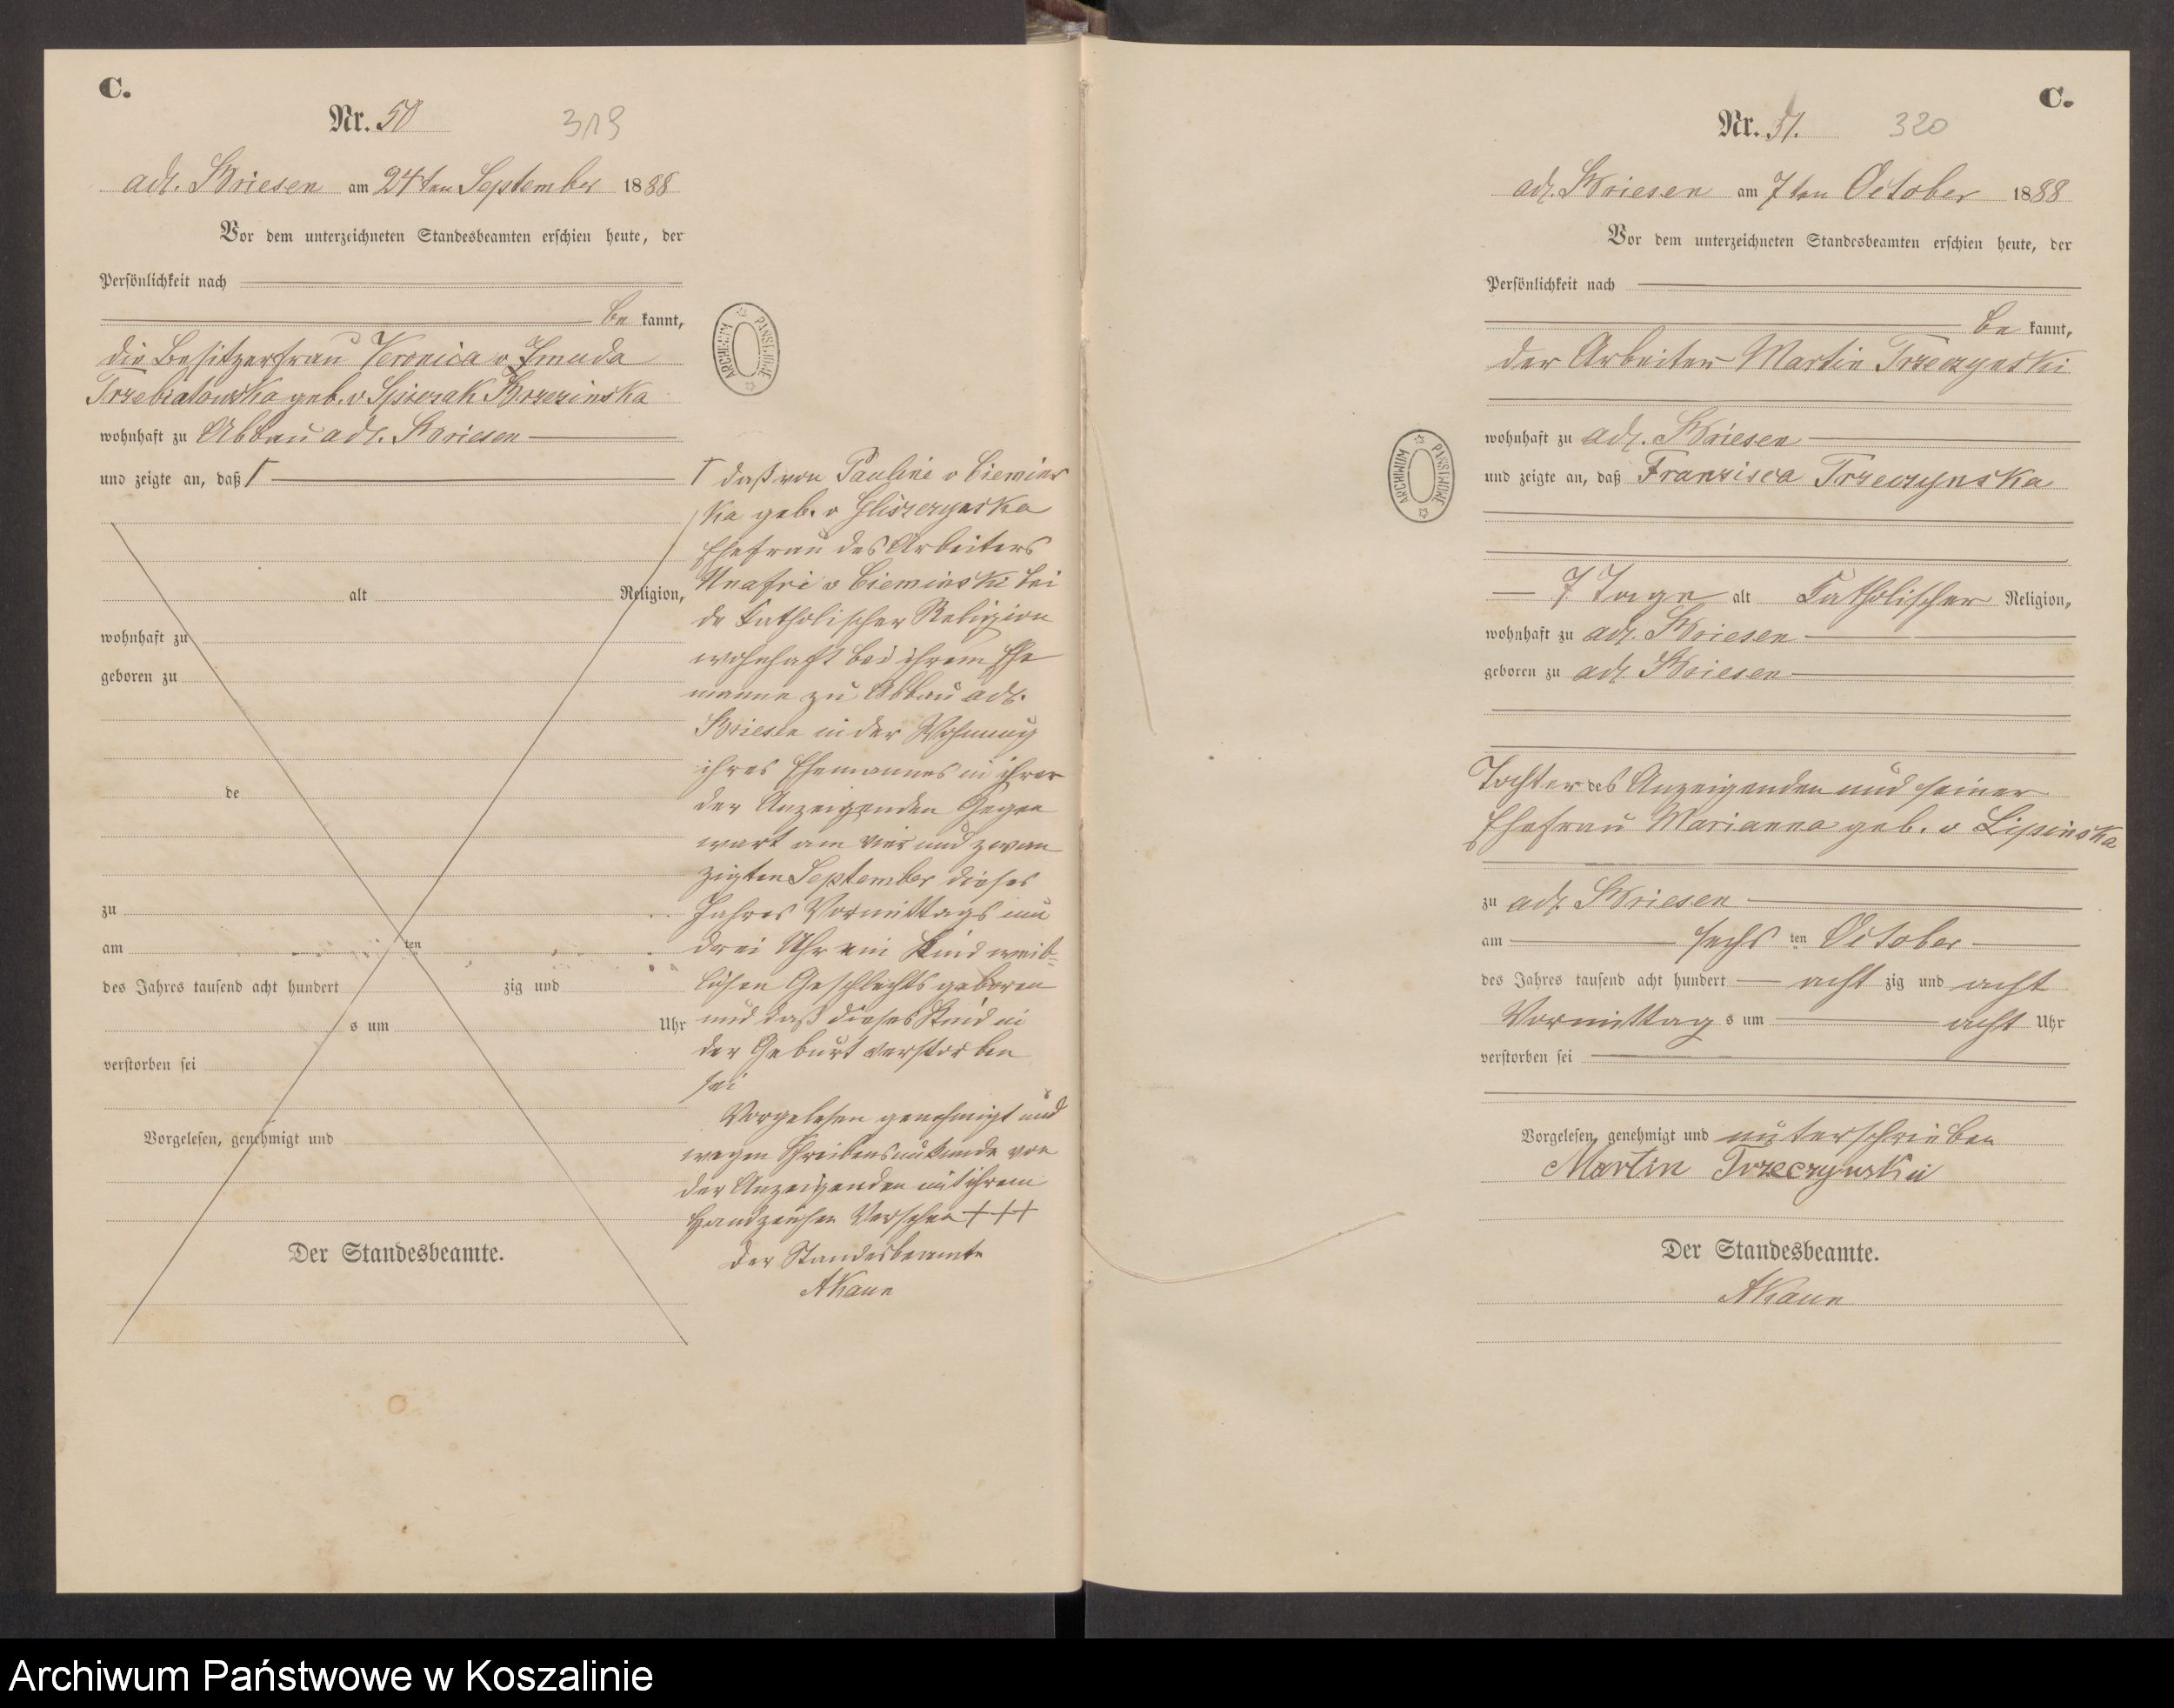 C.
Nr. 50
319
adl. Briesen am 24ten September 1888
Vor dem unterzeichneten Standesbeamten erschien heute, der
Persönlichkeit nach
be kannt,
die Besitzerfrau Veronica v Zmuda
Trzebiatowska geb. v Spiczak Brzezinska
wohnhaft zu Abbau adl. Briesen
und zeigte an, daß Γ
alt Religion,
wohnhaft zu
geboren zu
de
zu
am ten
des Jahres tausend acht hundert zig und
s um Uhr
verstorben sei
Vorgelesen, genehmigt und
Der Standesbeamte.
Γ daß von Pauline v Ciemins
ka geb. v Gliszczynska
Ehefrau des Arbeiters
v Cieminski bei
de Catholischer Religion
wohnhaft bei ihrem Ehe
manne zu Abbau adl.
Briesen in der Wohnung
ihres Ehemannes in ihrer
der Anzeigenden Gegen
wart am vier und zwan
zigten September dieses
Jahres Vormittags um
drei Uhr ein Kind weib-
lichen Geschlechts geboren
und daß dieses Kind in
der Geburt verstorben
sei
Vorgelesen genehmigt und
wegen Schreibensunkunde von
der Anzeigenden mit ihrem
Handzeichen Versehen +++
Der Standesbeamte
AKaun
ARCHIWUM PAŃSTWOWE
C.
Nr. 51.
320
adl. Briesen am 7ten October 1888
Vor dem unterzeichneten Standesbeamten erschien heute, der
Persönlichkeit nach
be kannt,
der Arbeiter Martin Trzeczynski
wohnhaft zu adl. Briesen
und zeigte an, daß Franzisca Trzeczynska
7 Tage alt Catholischer Religion,
wohnhaft zu adl. Briesen
geboren zu adl. Briesen
Tochter des Anzeigenden und seiner
Ehefrau Marianna geb. v Lipinska
zu adl. Briesen
am sechs ten October
des Jahres tausend acht hundert acht zig und acht
Vormittag s um acht Uhr
verstorben sei
Vorgelesen, genehmigt und unterschrieben
Martin Trzeczynski
Der Standesbeamte.
AKaun
ARCHIWUM PAŃSTWOWE
Archiwum Państwowe w Koszalinie